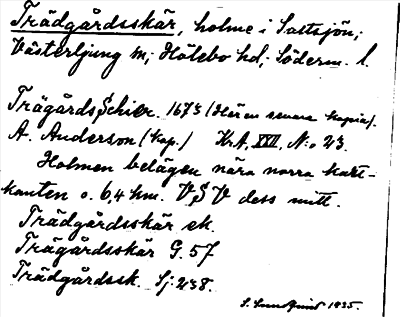 Trädgårdsskär, holme i Saltsjön;
Västerljung sn; Hölebo hd; Söderm. l.
Trägårds Schier. 1673 (Här en senare kopia).
A. Anderson (kop.) K.A, XXII, N:o 23.
Holmen belägen nära norra kart-
kanten o. 6,4 km. VSV dess mitt.
Trädgårdsskär ek.
Trägårdsskär G. 57
Trädgårdssk. Sj. 238.
S. 1935.